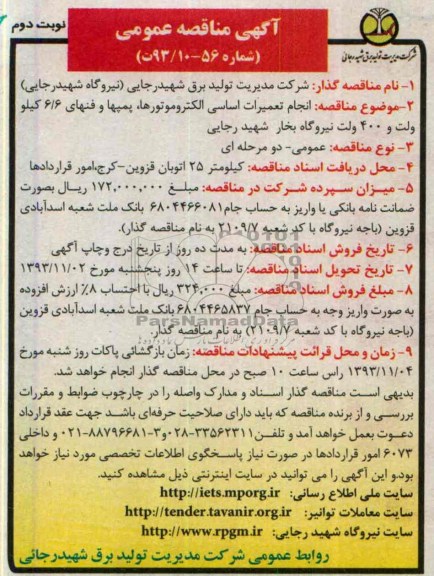 نوبت دوم
آگهی مناقصه عمومی
(شماره ۵۶-۹۳/۱۰ت)
شرکت مدیریت تولید برق شهید رجایی
۱- نام مناقصه گذار: شرکت مدیریت تولید برق شهیدرجایی (نیروگاه شهیدرجایی)
۲-موضوع مناقصه: انجام تعمیرات اساسی الکتروموتورها، پمپها و فنهای ۶/۶ کیلو
ولت و ۴۰۰ ولت نیروگاه بخار شهید رجایی
۳- نوع مناقصه: عمومی- دو مرحله ای
۴- محل دریافت اسناد مناقصه: کیلومتر ۲۵ اتوبان قزوین-کرج،امور قراردادها
۵- میزان سپرده شرکت در مناقصه: مبلغ ۱۷۲,۰۰۰,۰۰۰ ریال بصورت
ضمانت نامه بانکی یا واریز به حساب جام۶۸۰۴۴۶۶۰۸۱ بانک ملت شعبه اسدآبادی
قزوین (باجه نیروگاه با کد شعبه ۲۱۰۹/۷ به نام مناقصه گذار).
۶- تاریخ فروش اسناد مناقصه: به مدت ده روز از تاریخ درج وچاپ آگهی
۷- تاریخ تحویل اسناد مناقصه: تا ساعت ۱۴ روز پنجشنبه مورخ ۱۳۹۳/۱۱/۰۲
۸- مبلغ فروش اسناد مناقصه: مبلغ ۳۲۴,۰۰۰ ریال با احتساب ۸٪ ارزش افزوده
به صورت واریز وجه به حساب جام ۶۸۰۴۴۶۵۸۳۷ بانک ملت شعبه اسدآبادی قزوین
(باجه نیروگاه با کد شعبه ۲۱۰۹/۷) به نام مناقصه گذار.
ParsNamadData
۹- زمان و محل قرائت پیشنهادات مناقصه: زمان بازگشائی پاکات روز شنبه مورخ
۱۳۹۳/۱۱/۰۴ راس ساعت ۱۰ صبح در محل مناقصه گذار انجام خواهد شد.
بدیهی است مناقصه گذار اسناد و مدارک واصله را در چارچوب ضوابط و مقررات
بررسی و از برنده مناقصه که باید دارای صلاحیت حرفه‌ای باشد جهت عقد قرارداد
دعوت بعمل خواهد آمد و تلفن ۳۳۵۶۲۳۱۱-۰۲۸ و۳-۸۸۷۹۶۶۸۱-۰۲۱ و داخلی
۶۰۷۳ امور قراردادها در صورت نیاز پاسخگوی اطلاعات تخصصی مورد نیاز خواهد
بود.و این آگهی را می توانید در سایت اینترنتی ذیل مشاهده کنید.
سایت ملی اطلاع رسانی: http://iets.mporg.ir
سایت معاملات توانیر: http://tender.tavanir.org.ir
سایت نیروگاه شهید رجایی: http://www.rpgm.ir
روابط عمومی شرکت مدیریت تولید برق شهیدرجائی